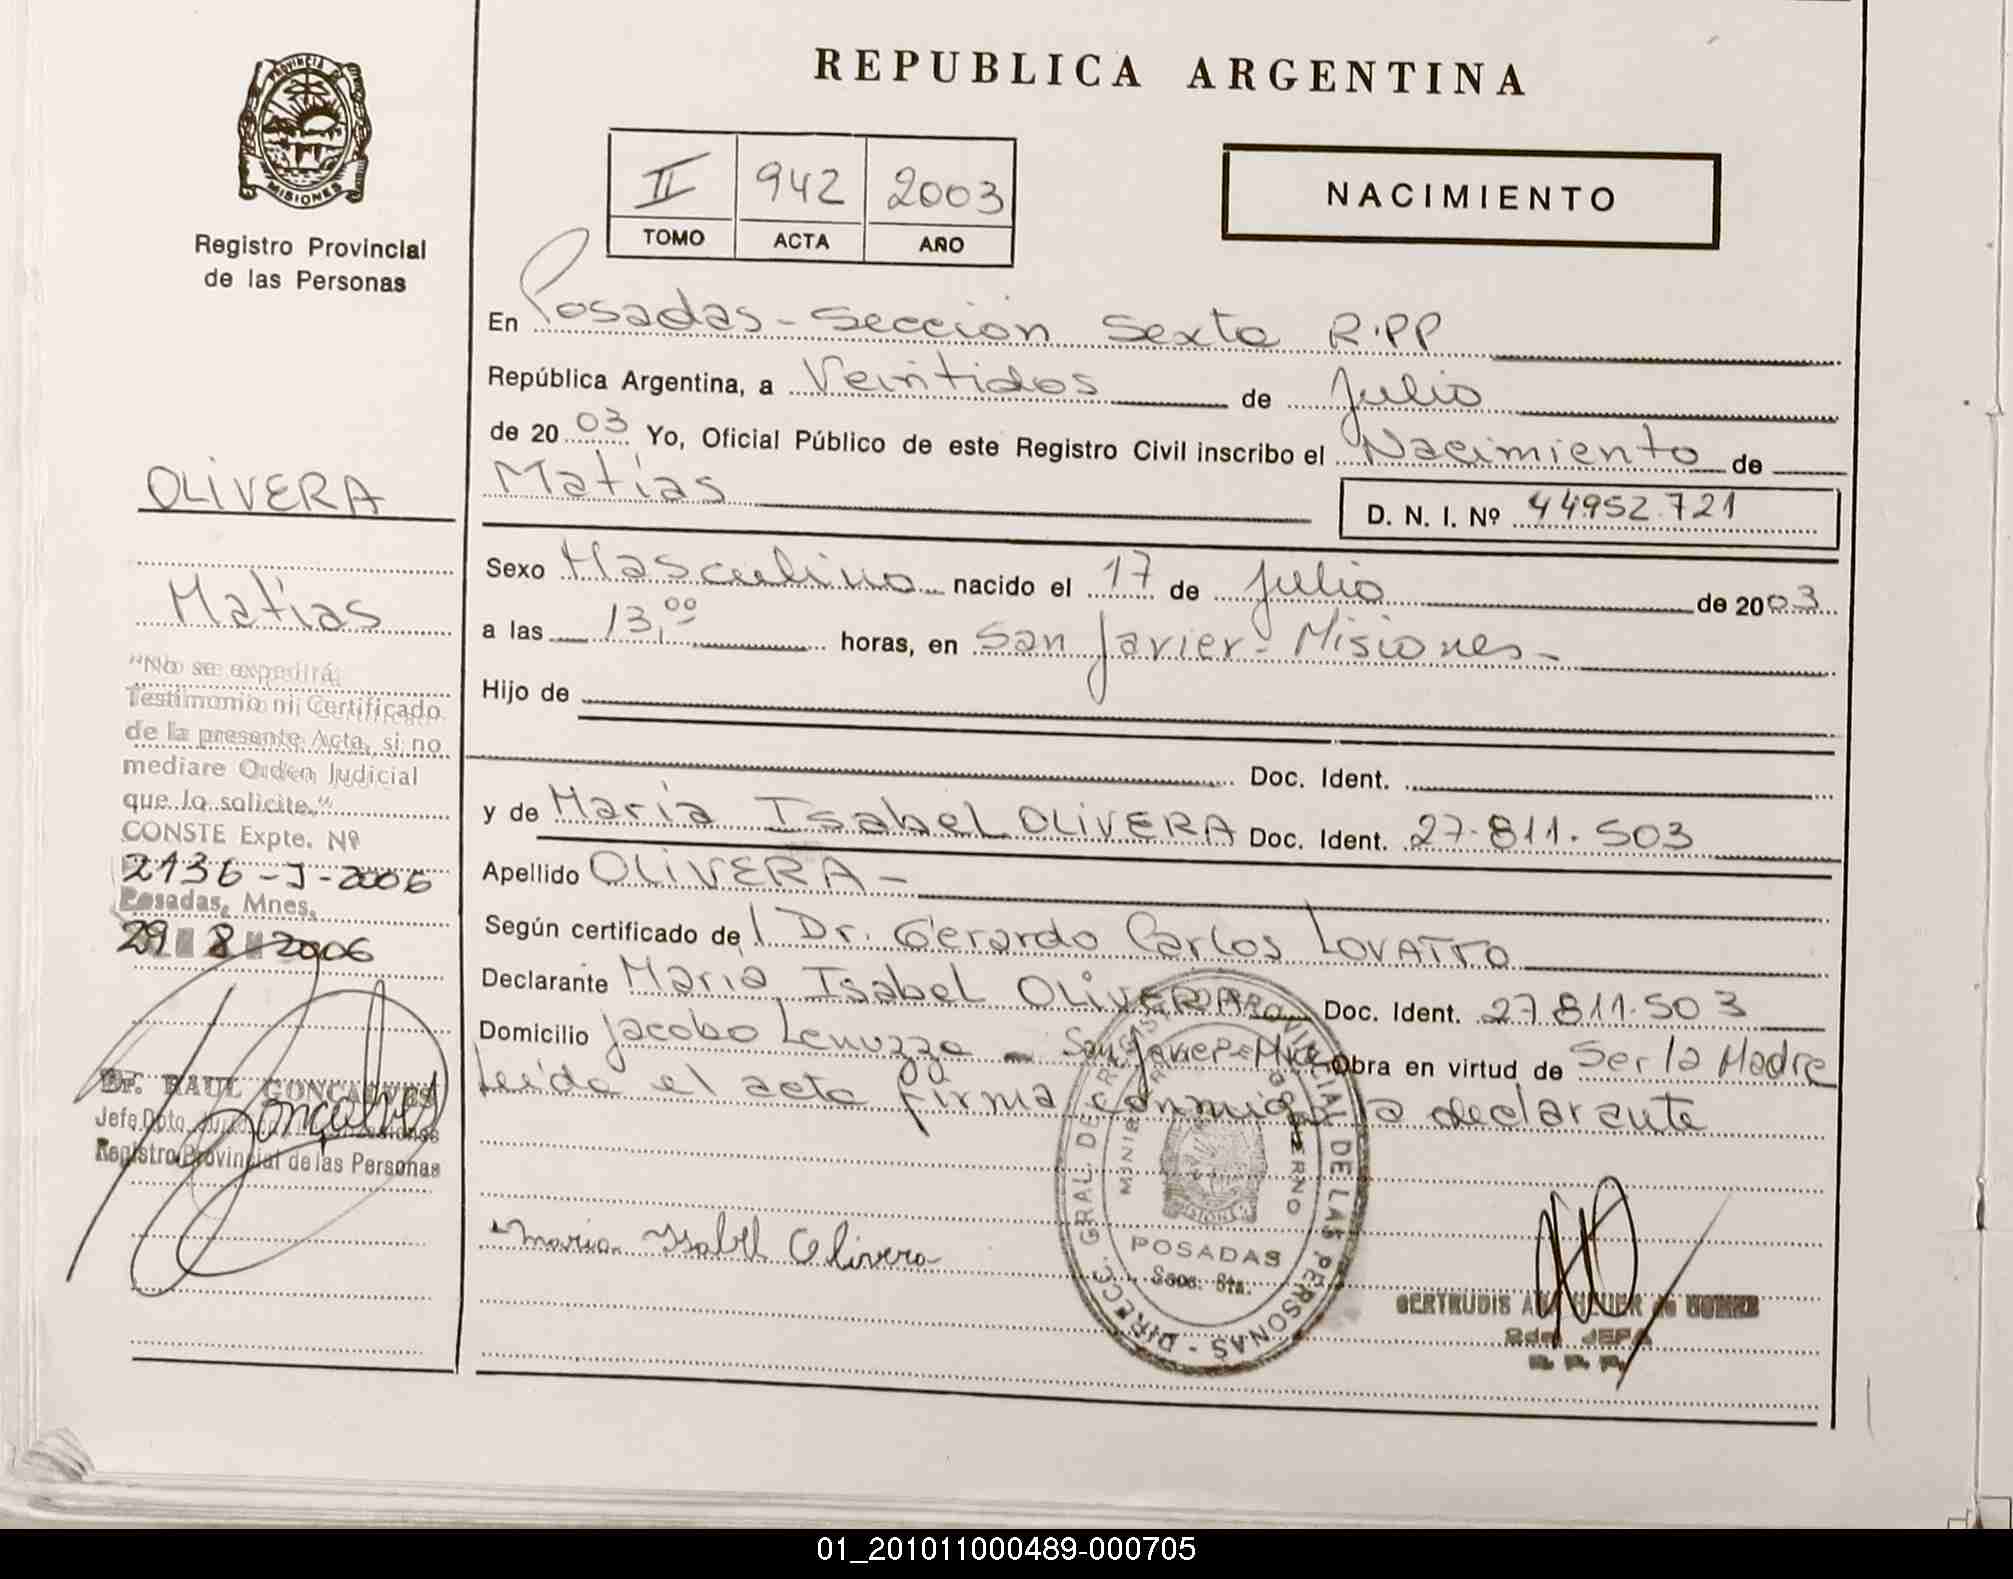 REPUBLICA ARGENTINA
PROVINCIA D
MISIONES
Registro Provincial
de las Personas
II 942 2003
TOMO ACTA AÑO
NACIMIENTO
En Posadas - Sección Sexta R.PP
República Argentina, a Veintidos de Julio
de 2003 Yo, Oficial Público de este Registro Civil inscribo el Nacimiento de
Matías
D. N. I. Nº 44952.721
Sexo Masculino nacido el 17 de Julio de 2003
a las 13,00 horas, en San Javier - Misiones -
Hijo de
Doc. Ident.
y de María Isabel OLIVERA Doc. Ident. 27.811.503
Apellido OLIVERA -
Según certificado de Dr. Gerardo Carlos LOVATTO
Declarante María Isabel OLIVERA Doc. Ident. 27.811.503
Domicilio Jacobo - San Javier - Obra en virtud de Ser la Madre
Leída el acta firma conmigo la declarante
Maria Isabel Olivera
DIRECC. GRAL. DE REGISTRO PROVINCIAL DE LAS PERSONAS -
POSADAS
Secc. 6ta.
GERTRUDIS
JEFA
R. P. P.
OLIVERA
Matías
"No se expedirá
Testimonio ni Certificado
de la presente Acta, si no
mediare Orden Judicial
que lo solicite."
CONSTE Expte. Nº
2136-J-2006
Posadas, Mnes.
29 8 2006
Dr. RAUL GONCALVES
Jefe Dpto.
Registro Provincial de las Personas
01_201011000489-000705